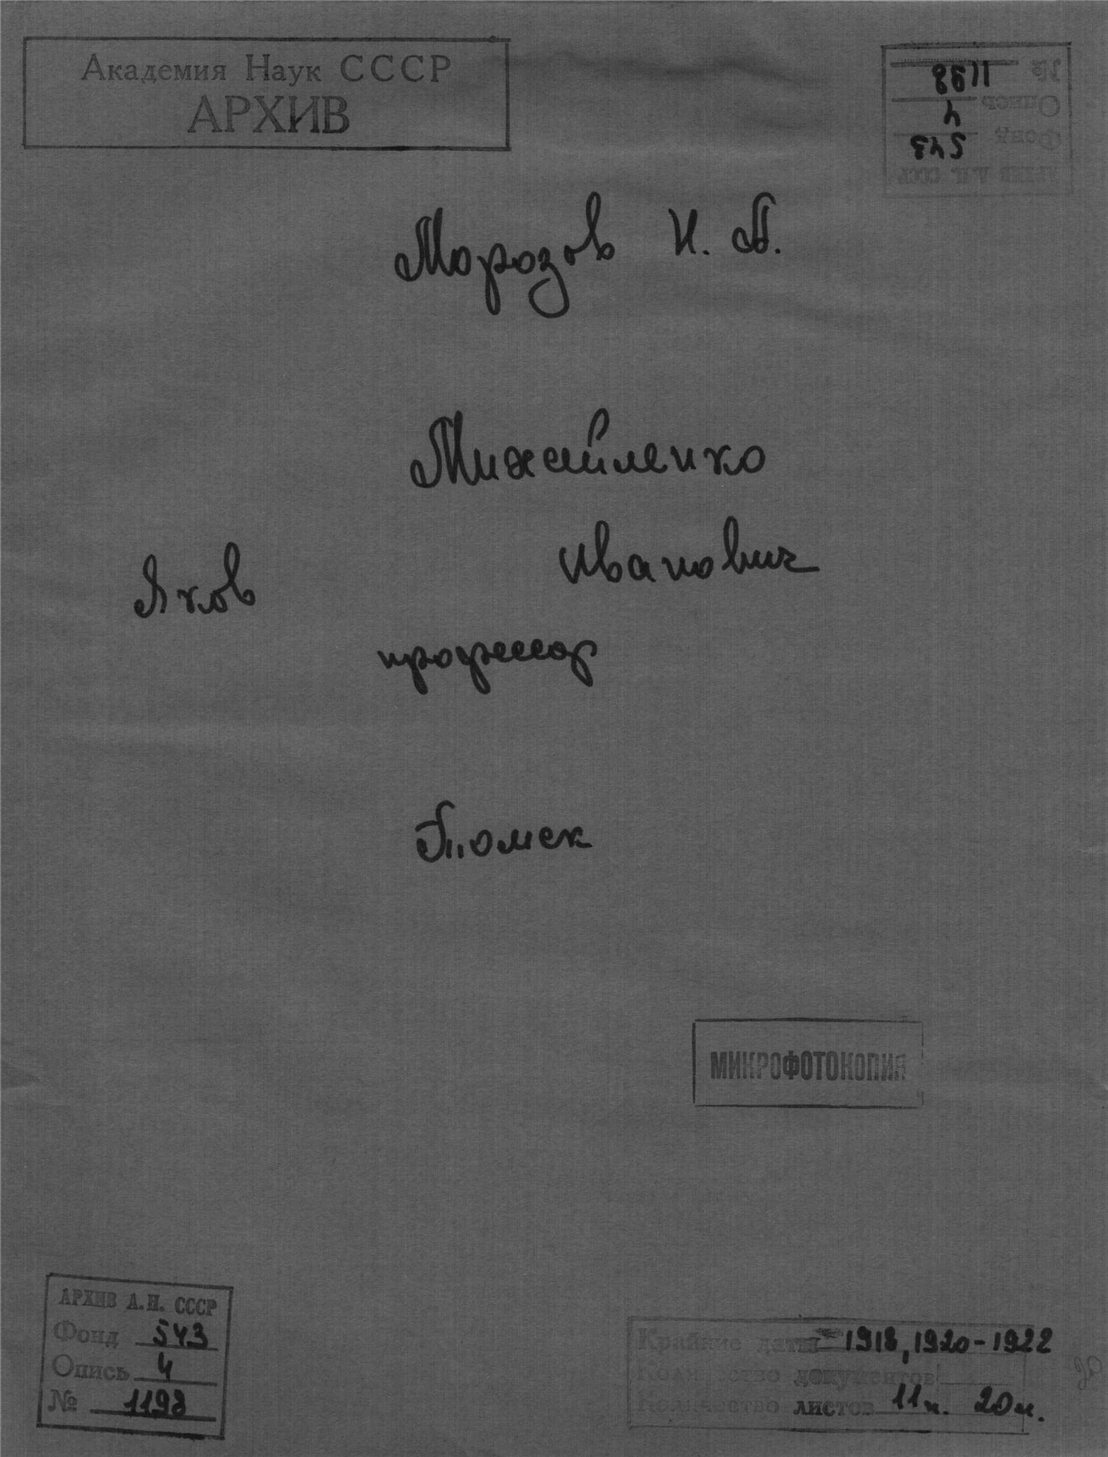 Академия Наук СССР
АРХИВ
№ 1198
Опись 4
Фонд 543
АРХИВ А.Н. СССР
Морозов Н. А.
Михайленко
Яков Иванович
профессор
Томск
МИКРОФОТОКОПИЯ
АРХИВ А.Н. СССР
Фонд 543
Опись 4
№ 1198
Крайние даты 1918, 1920-1922
Количество документов
Количество листов 11 п. 20 л.